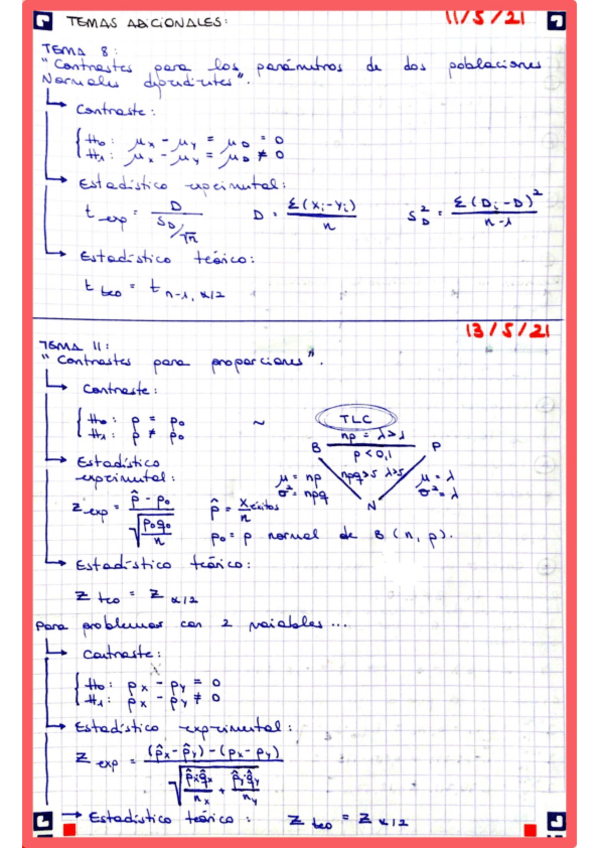 TEMAS ADICIONALES: 11/5/21
TEMA 8:
"Contrastes para los parámetros de dos poblaciones
Normales dependientes".
Contraste:
H₀: μx - μy = μD = 0
H₁: μx - μy = μD ≠ 0
Estadístico experimental:
t exp = D / (S_D/√n)    D = Σ(xi-yi) / n    S²_D = Σ(Di-D)² / n-1
Estadístico teórico:
t teo = t n-1, α/2
13/5/21
TEMA 11:
"Contrastes para proporciones".
Contraste:
H₀: p = p₀
H₁: p ≠ p₀
~ TLC
B np = λ>1 P
p<0,1
μ = np
σ² = npq
npq>5 λ>5
μ = λ
σ² = λ
N
Estadístico
experimental:
Z exp = (p̂ - p₀) / √(p₀q₀/n)    p̂ = x éxitos / n
p₀ = p normal de B(n, p).
Estadístico teórico:
Z teo = Z α/2
Para problemas con 2 variables...
Contraste:
H₀: px - py = 0
H₁: px - py ≠ 0
Estadístico experimental:
Z exp = (p̂x - p̂y) - (px - py) / √(p̂x q̂x/nx + p̂y q̂y/ny)
Estadístico teórico: Z teo = Z α/2